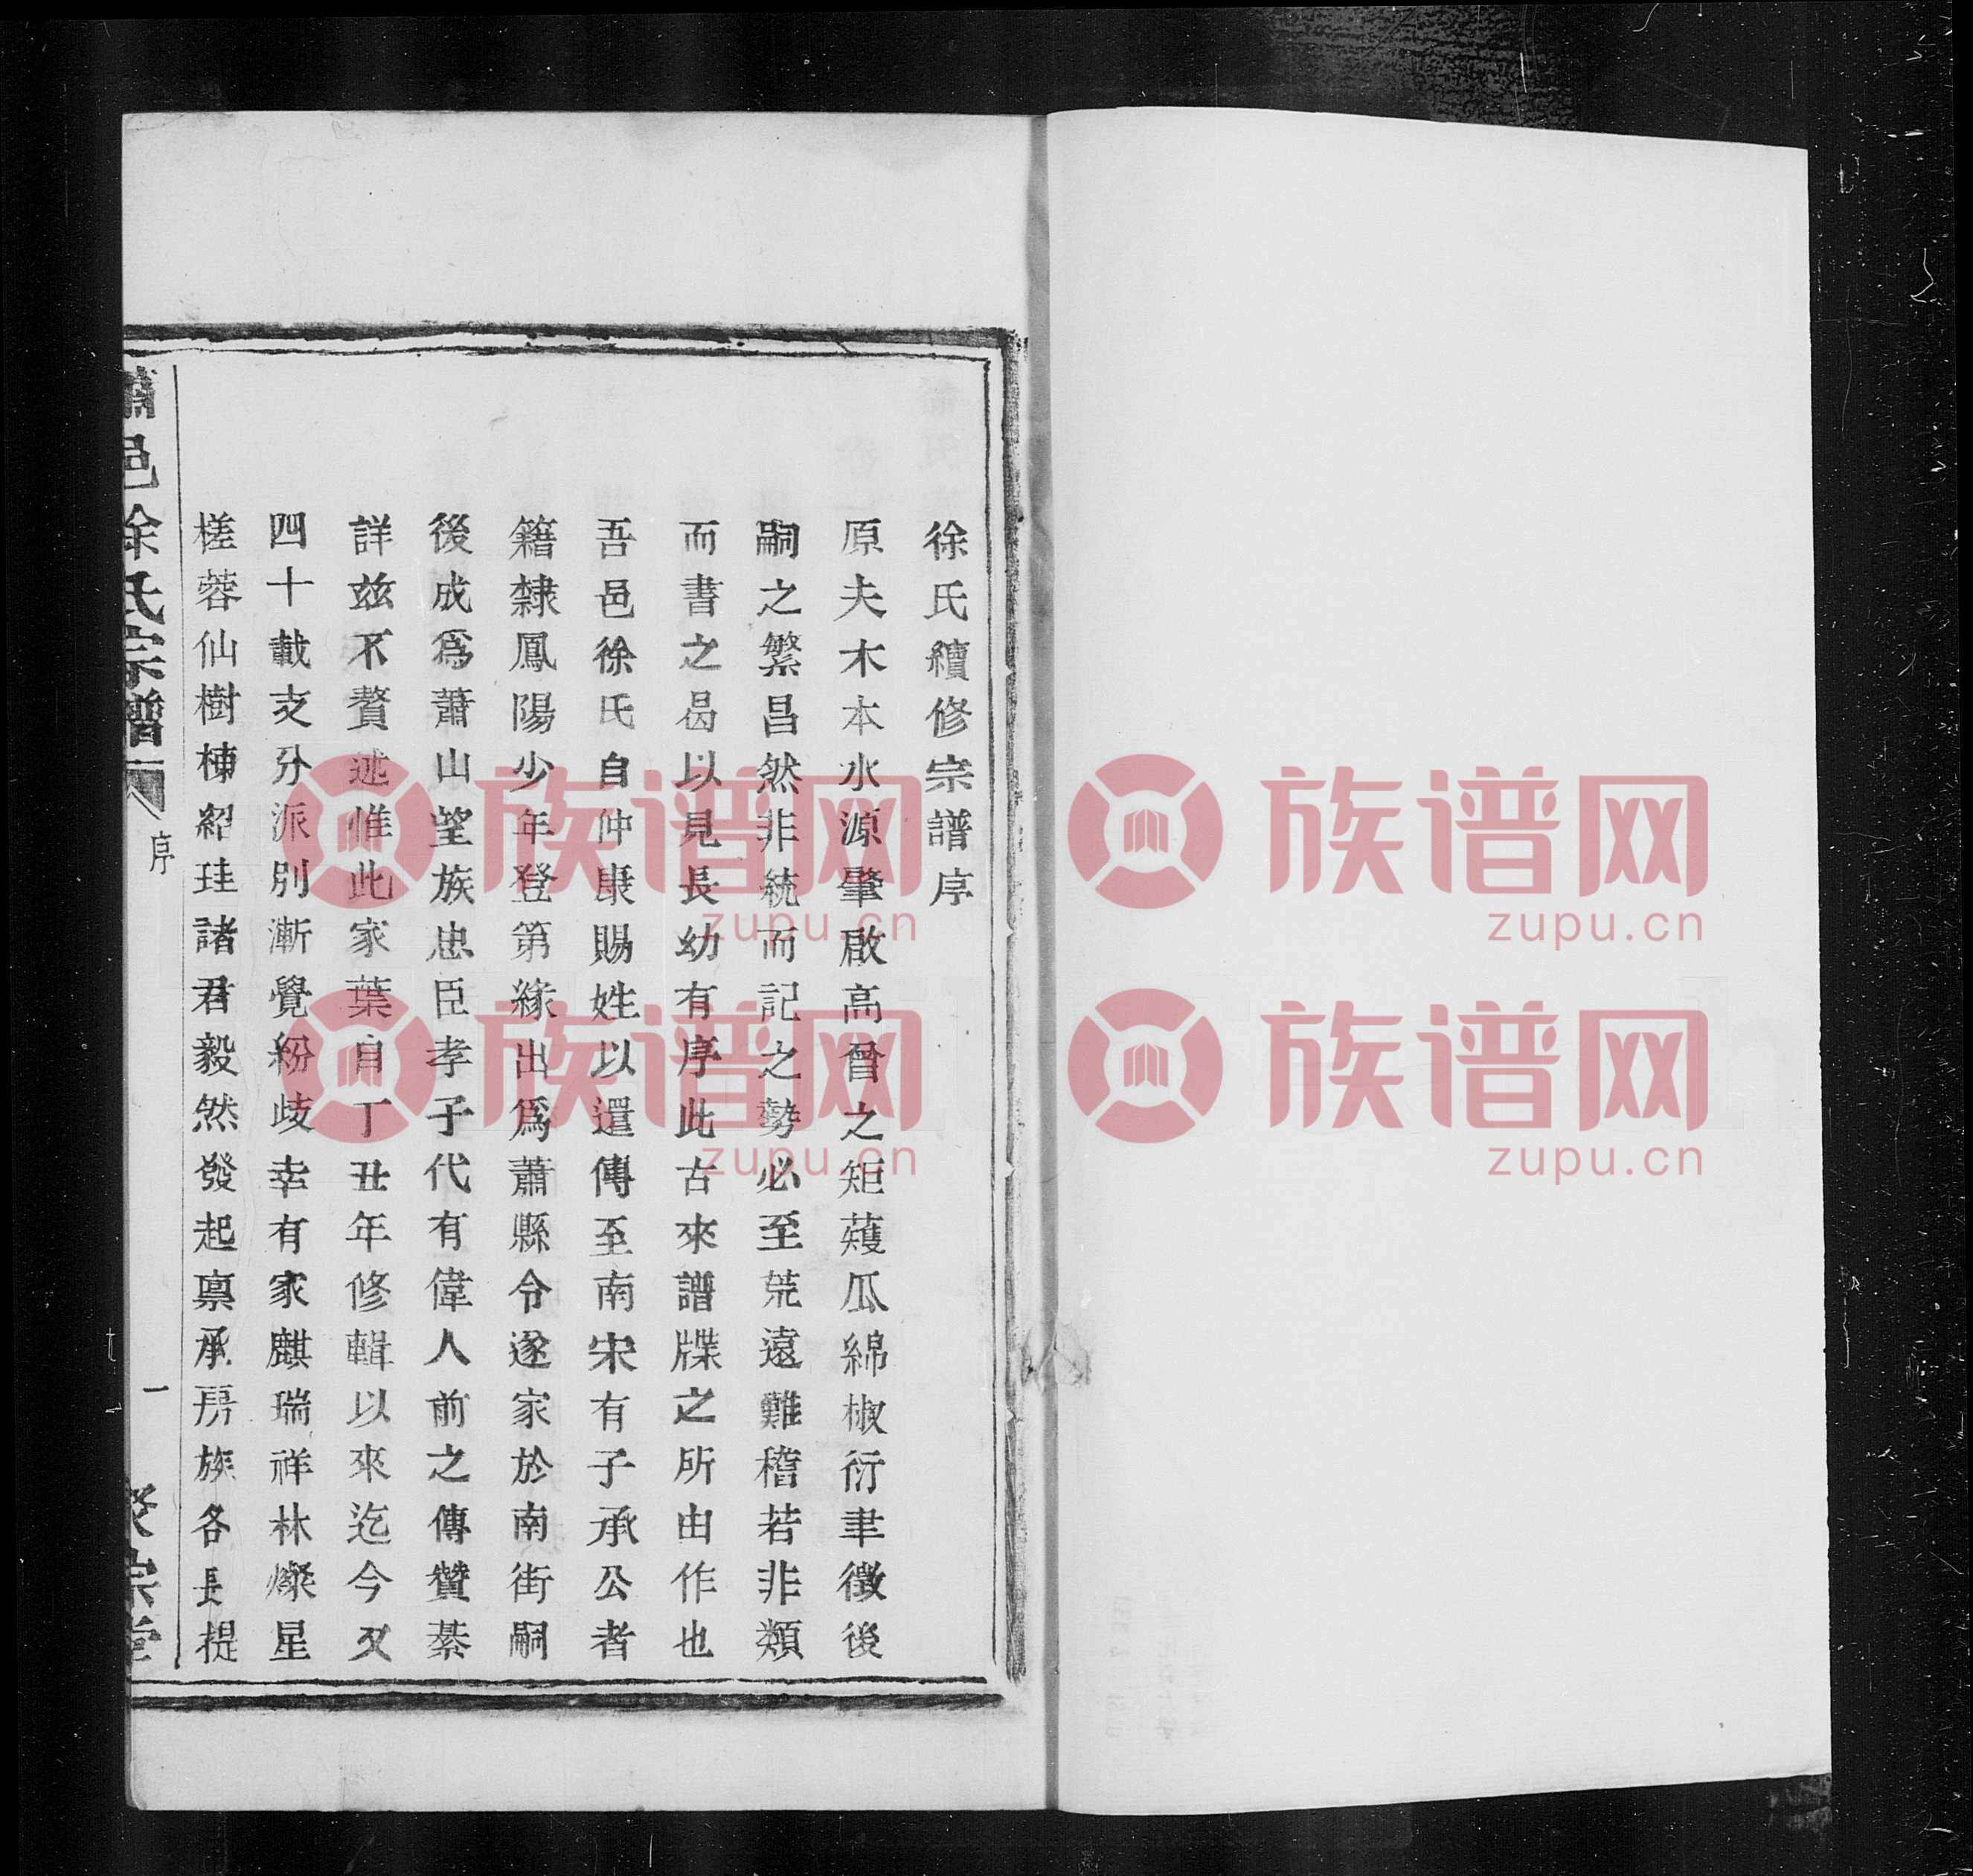 徐氏續修宗譜序
原夫木本水源肇啟高曾之矩薙瓜綿椒衍聿徵後
嗣之繁昌然非統而記之勢必至荒遠難稽若非類
而書之曷以見長幼有序此古來譜牒之所由作也
吾邑徐氏自仲康賜姓以還傳至南宋有子承公者
籍隸鳳陽少年登第緣出爲蕭縣令遂家於南街嗣
後成爲蕭山望族忠臣孝子代有偉人前之傳贊綦
詳兹不贅述惟此家葉自丁丑年修輯以來迄今又
四十載支分派別漸覺紛歧幸有家麒瑞祥林燦星
槎蓉仙樹棟紹珪諸君毅然發起禀承房族各長提
蕭邑徐氏宗譜
序
一
宗堂
族谱网
zupu.cn
族谱网
zupu.cn
族谱网
zupu.cn
族谱网
zupu.cn